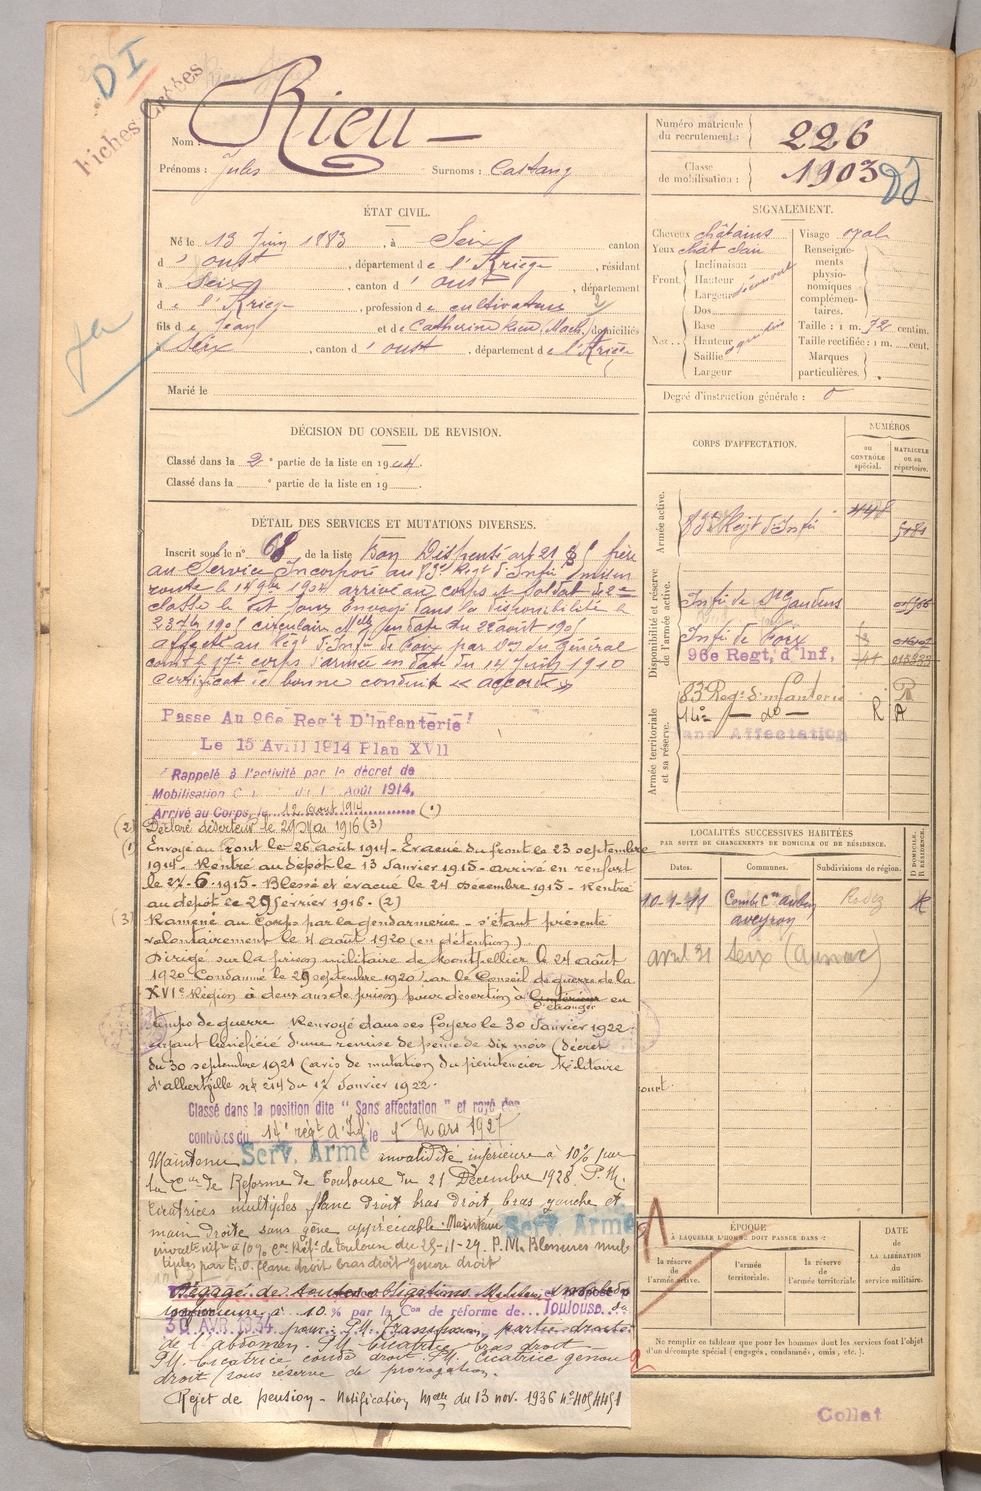 DI
Fiches Créées
Nom : Rieu
Prénoms : Jules Surnoms : Castang
Numéro matricule du recrutement : 226
Classe de mobilisation : 1903
ÉTAT CIVIL.
Né le 13 Juin 1883, à Seix canton
d'oust, département de l'Ariège, résidant
à Seix, canton d'oust, département
de l'Ariège, profession de cultivateur
fils de Jean et de Catherine domiciliés
à Seix, canton d'oust, département de l'Ariège
Marié le
SIGNALEMENT.
Cheveux châtains
Yeux chât clair
Front
Inclinaison
Hauteur
Largeur
Nez
Dos
Base
Hauteur
Saillie
Largeur
Visage oval
Renseignements physionomiques complémentaires.
Taille : 1 m. 72 centim.
Taille rectifiée : 1 m. cent.
Marques particulières.
Degré d'instruction générale : 0
DÉCISION DU CONSEIL DE REVISION.
Classé dans la 2e partie de la liste en 1904.
Classé dans la e partie de la liste en 19
DÉTAIL DES SERVICES ET MUTATIONS DIVERSES.
Inscrit sous le n° 68 de la liste Bon Dispensé art 21 frère
au Service Incorporé au 83e Regt d'Infie mis en
route le 14 9bre 1904 arrivé au corps et Soldat de 2e
classe le dit jour Envoyé dans la disponibilité le
23 7bre 1905 circulaire Melle en date du 22 août 1905
affecté au Régt d'Infie de Foix par Don du Général
comt le 17e corps d'armée en date du 14 Juin 1910
certificat de bonne conduite « accordé »
Passe Au 96e Reg't D'Infanterie
Le 15 Avril 1914 Plan XVII
Rappelé à l'activité par le décret de
Mobilisation du 1er Août 1914,
Arrivé au Corps, le 12 août 1914 (1)
(2) Déclaré déserteur le 21 Mai 1916 (3)
(1) Envoyé au front le 26 août 1914 - Evacué du front le 23 septembre
1914 - Rentré au dépôt le 13 Janvier 1915 - arrivé en renfort
le 27-6-1915 - Blessé et évacué le 24 Décembre 1915 - Rentré
au dépôt le 29 février 1916. (2)
(3) Ramené au Corps par la gendarmerie - s'étant présenté
volontairement le 4 août 1920 (en détention).
Dirigé sur la prison militaire de Montpellier le 24 août
1920 Condamné le 29 septembre 1920 par le Conseil de guerre de la
XVIe Région à deux ans de prison pour désertion à l'intérieur l'étranger en
temps de guerre Renvoyé dans ses foyers le 30 Janvier 1922.
ayant bénéficié d'une remise de peine de six mois (décret
du 30 septembre 1921 (avis de mutation du pénitencier Militaire
d'albertville n° 214 du 17 Janvier 1922.
Classé dans la position dite "Sans affectation" et rayé des
contrôles du 14e régt d'Inf le 1er Mars 1927
Maintenu Serv. Armé invalidité inférieure à 10% par
la Con de Réforme de Toulouse du 21 Décembre 1928 P.M.
cicatrices multiples flanc droit bras droit, bras gauche et
main droite sans gêne appréciable. Maintenu Serv. Armé
invalté inf. à 10% Con Réf. de Toulouse du 25-11-29. P.M. Blessures mul-
tiples par E.O. flanc droit bras droit genou droit
Dégagé de toutes obligations Militaires
10 % par la Con de réforme de Toulouse du
30 AVR. 1934 pour : P.M. partie droite
de l'abdomen. P.M. Cicatrice bras droit -
P.M. Cicatrice coude droit. P.M. Cicatrice genou
droit (sous réserve de prorogation.
Rejet de pension - Notification Melle du 13 nov. 1936 n° 4054451
CORPS D'AFFECTATION.
NUMÉROS
au CONTRÔLE spécial.
MATRICULE ou au répertoire.
Armée active.
83e Régt d'Infie
Disponibilité et réserve de l'armée active.
Infie de St Gaudens
Infie de Foix
96e Regt, d'Inf,
Armée territoriale et sa réserve.
83e Reg. d'infanterie
14e - do - R A
Sans Affectation
LOCALITÉS SUCCESSIVES HABITÉES
PAR SUITE DE CHANGEMENTS DE DOMICILE OU DE RÉSIDENCE.
Dates. Communes. Subdivisions de région. D DOMICILE. R RÉSIDENCE.
aveyron Rodez R
avril 31 Seix
ÉPOQUE
À LAQUELLE L'HOMME DOIT PASSER DANS :
la réserve de l'armée active.
l'armée territoriale.
la réserve de l'armée territoriale
DATE de LA LIBÉRATION du service militaire.
Ne remplir ce tableau que pour les hommes dont les services font l'objet
d'un décompte spécial (engagés, condamnés, omis, etc.).
Collat